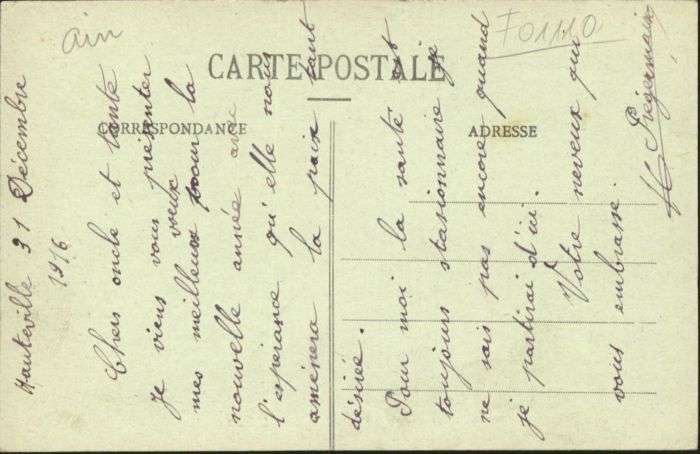 Ain
F01110
CARTE POSTALE
CORRESPONDANCE
ADRESSE
Hauteville 31 Décembre
1916
Cher oncle et tante
Je viens vous présenter
mes meilleux voeux pour la
nouvelle année avec
l'espérance qu'elle nous
amènera la paix tant
désirée.
Pour moi la santé est
toujours stasionnaire je
ne sais pas encore quand
je partirai d'ici.
Votre neveux qui
vous embrasse.